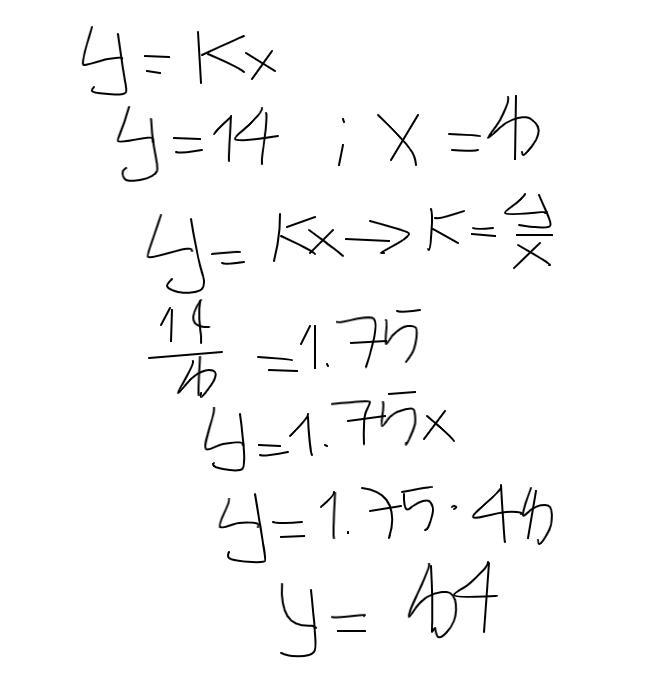 y = Kx
y = 14 ; x = 8
y = Kx → K = y/x
14/8 = 1.75
y = 1.75x
y = 1.75 · 48
y = 84